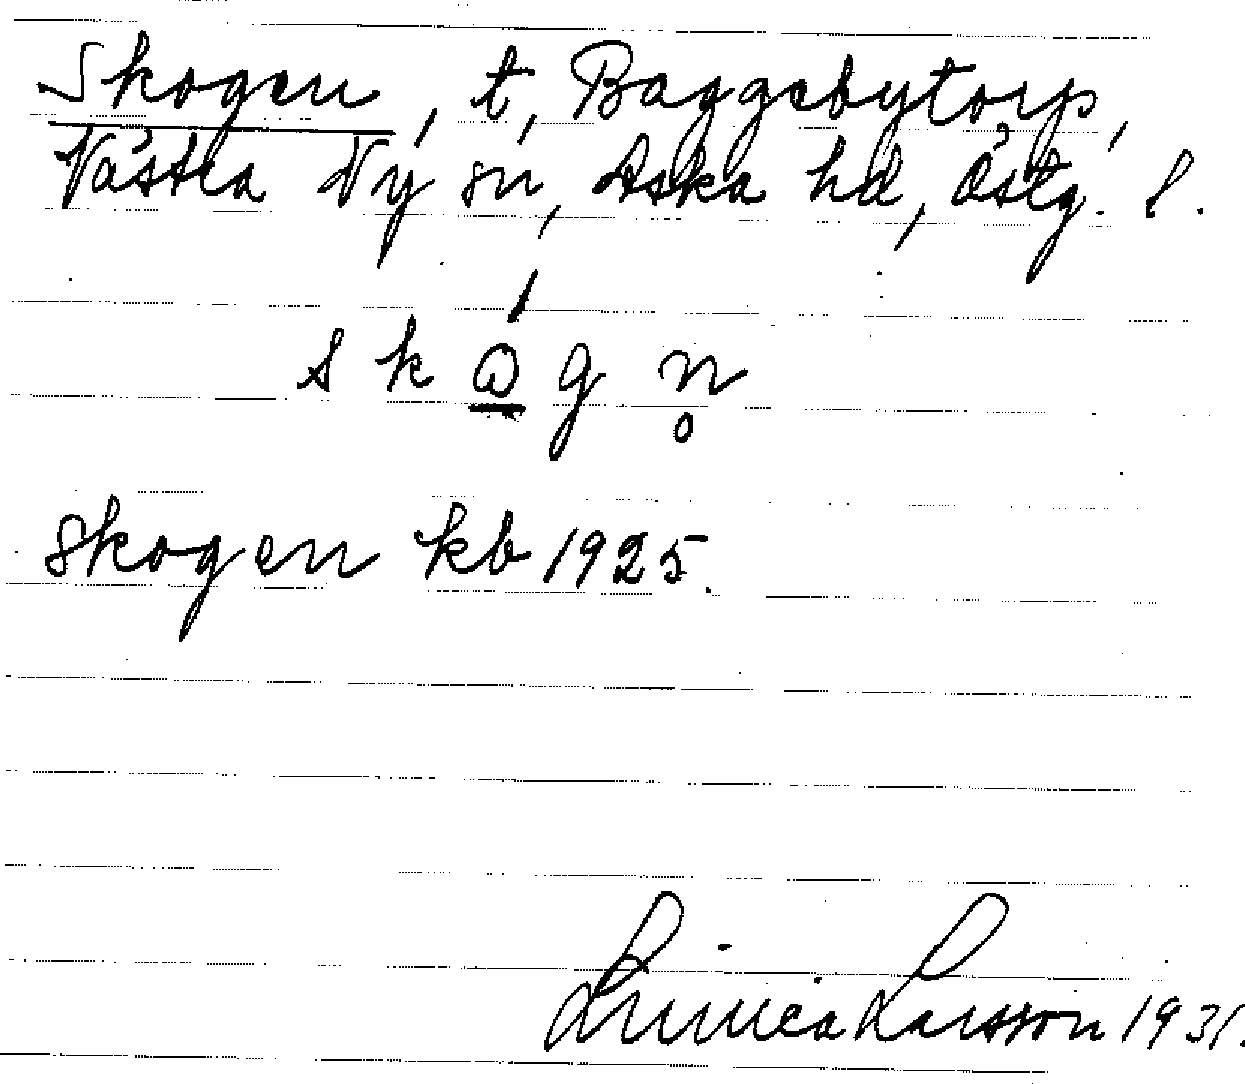 Skogen, t, Baggebytorp,
Västra Ny sn, Aska hd, Östg. l.
skώ̲gn̥
Skogen kb 1925.
Linnea Larsson 1931.